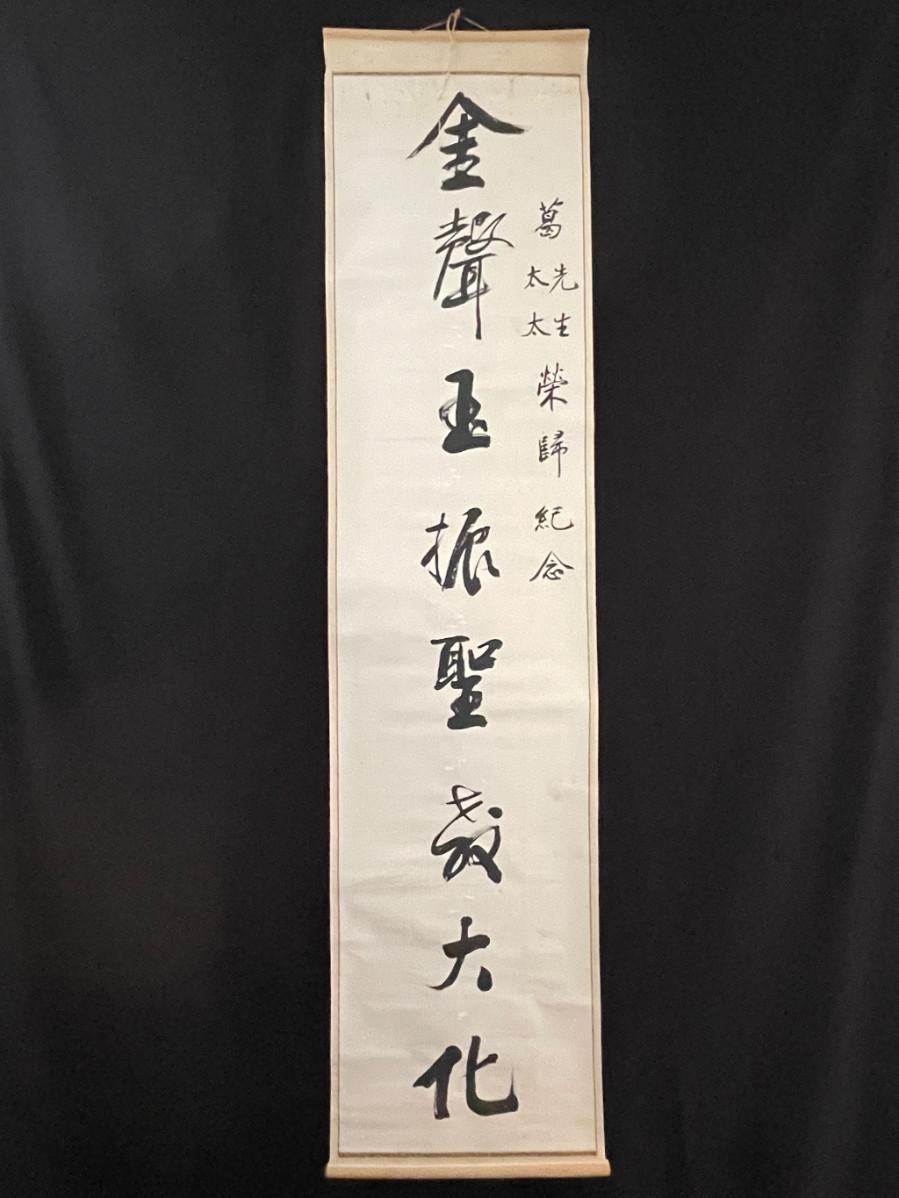 葛先生太太榮歸紀念
金聲玉振聖教大化